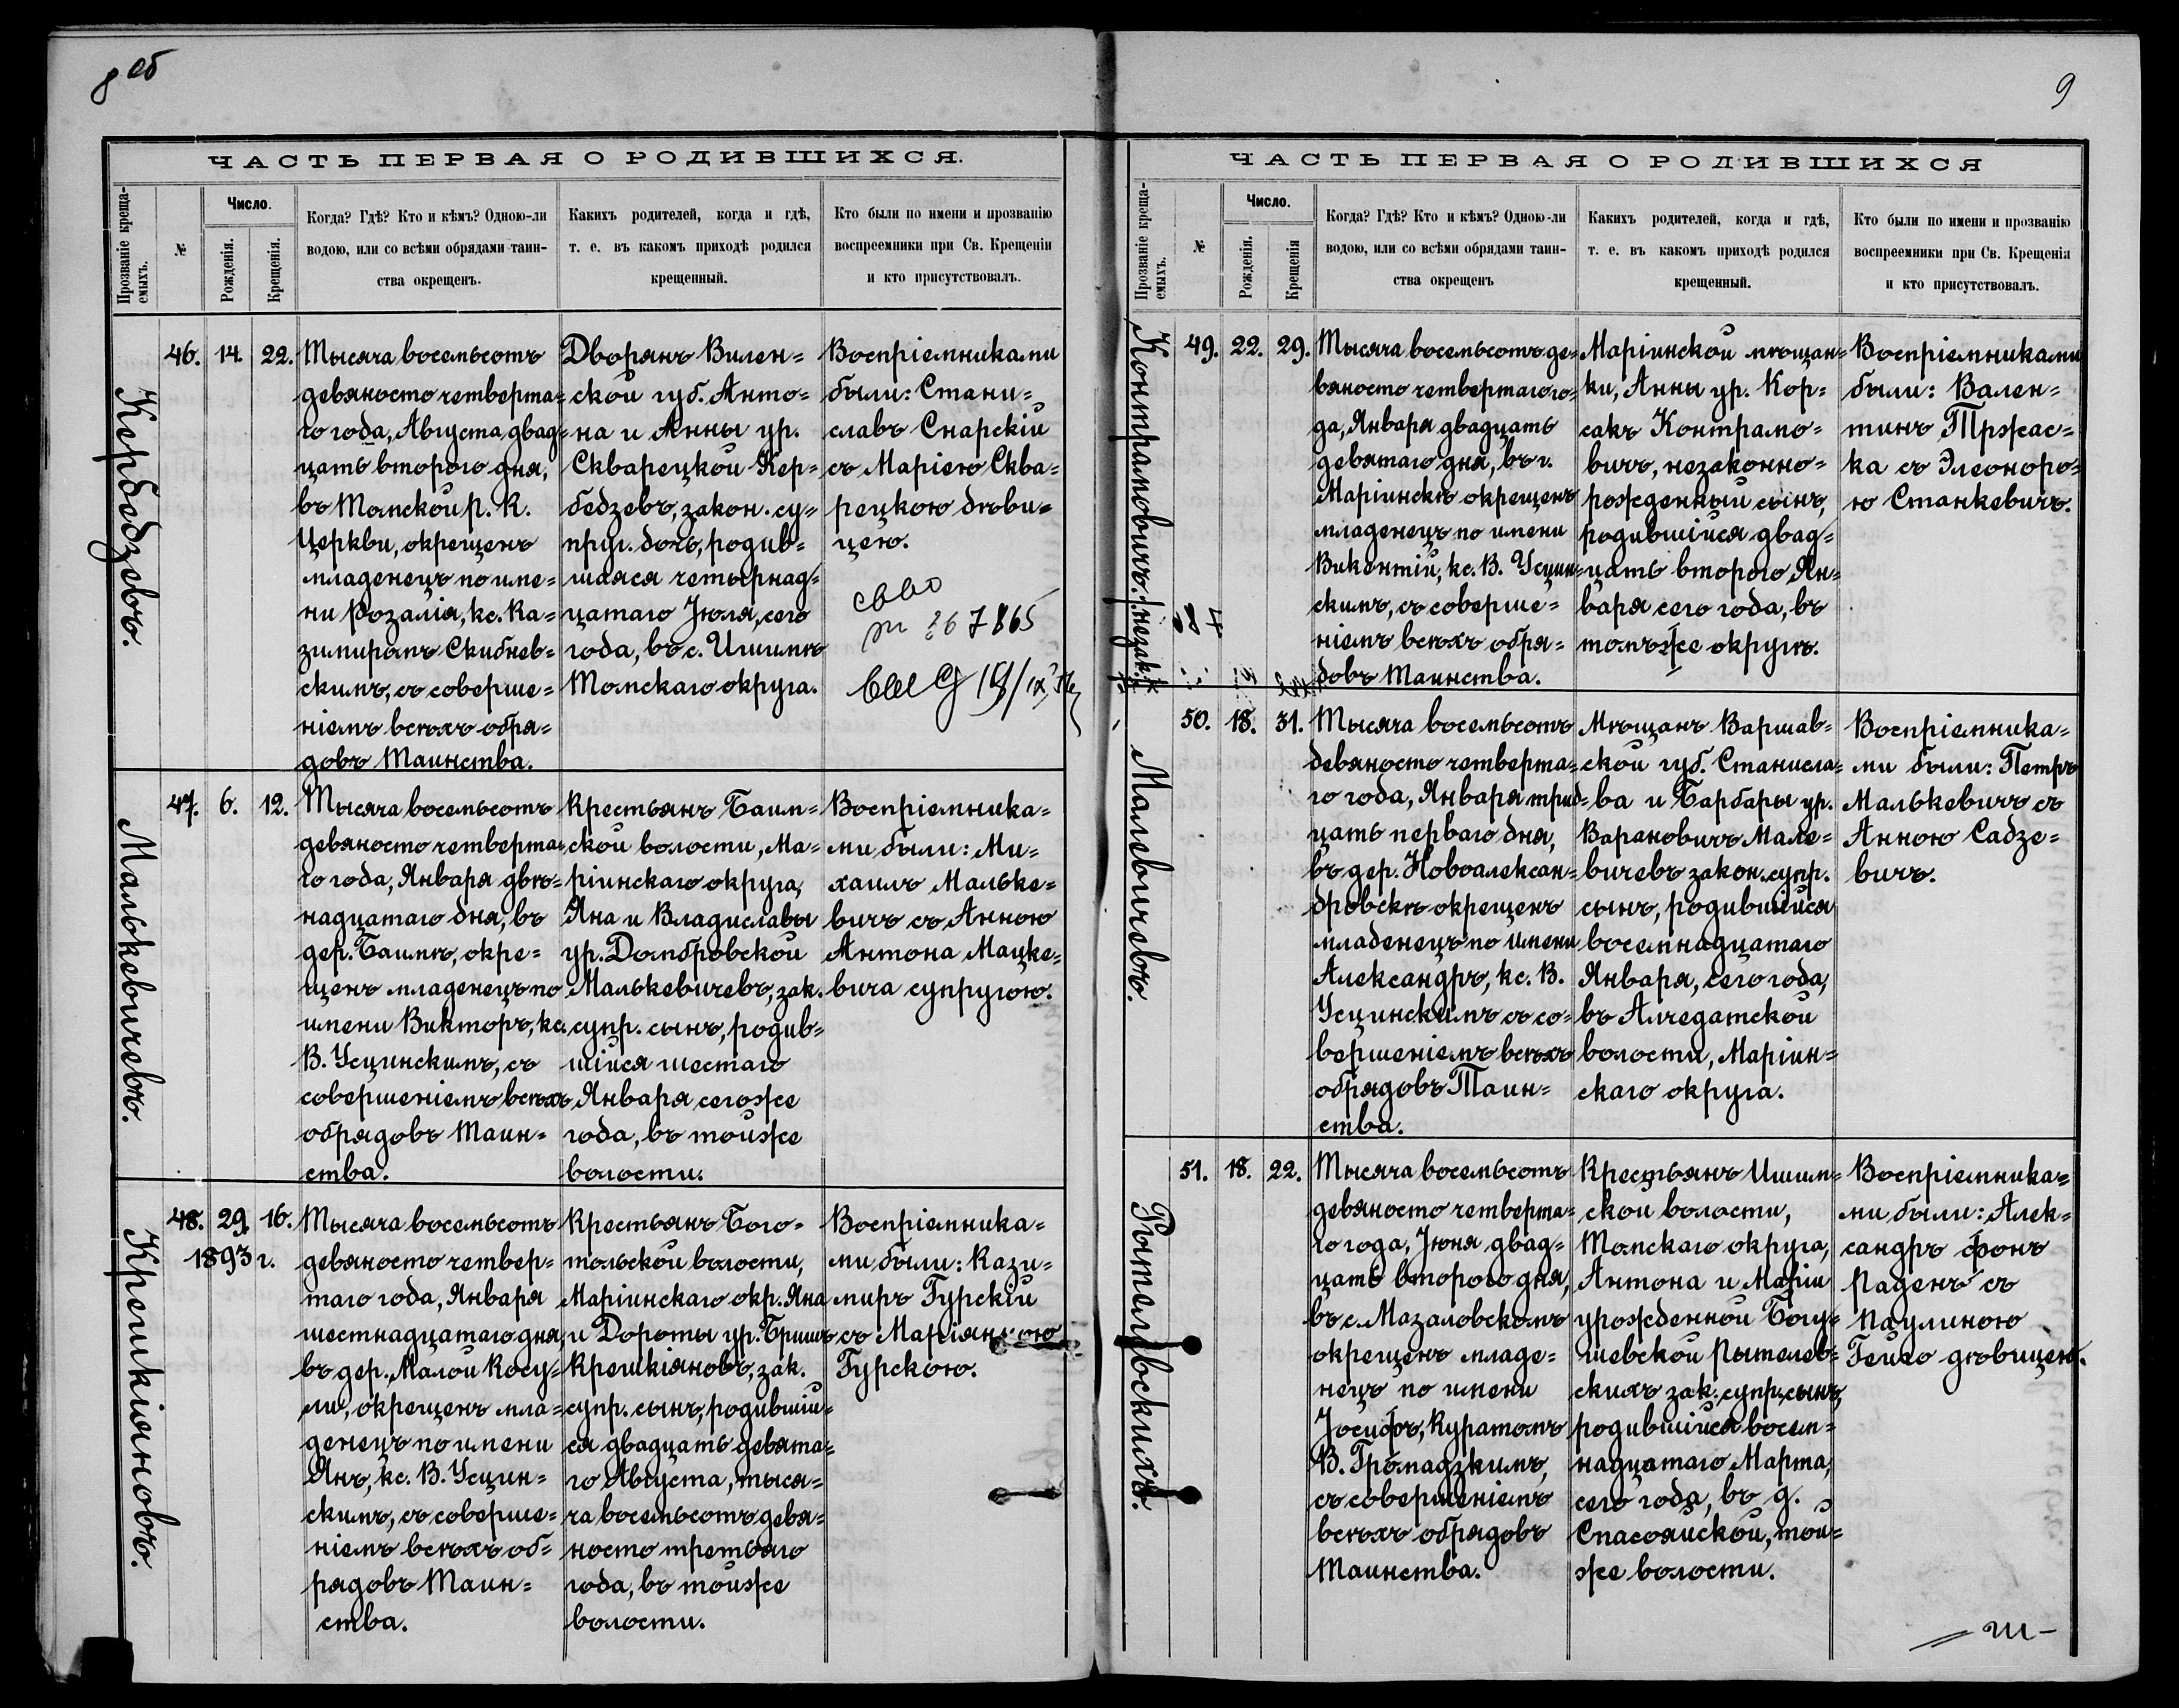 8 об
ЧАСТЬ ПЕРВАЯ О РОДИВШИХСЯ.
Прозваніе креща-
емыхъ.
№
Число.
Рожденія.
Крещенія.
Когда? Гдѣ? Кто и кѣмъ? Одною-ли
водою, или со всѣми обрядами таин-
ства окрещенъ.
Какихъ родителей, когда и гдѣ,
т. е. въ какомъ приходѣ родился
крещенный.
Кто были по имени и прозванію
воспреемники при Св. Крещеніи
и кто присутствовалъ.
Кербедзевъ.
46. 14. 22.
Тысяча восемьсотъ
девяносто четверта=
го года, Августа двад=
цать второго дня,
въ Томской Р. К.
Церкви, окрещенъ
младенецъ по име=
ни Розалія, кс. Ка=
зимиромъ Скибнев=
скимъ, съ соверше=
ніемъ всѣхъ обря=
довъ Таинства.
Дворянъ Вилен=
ской губ. Анто=
на и Анны ур.
Скварецкой Кер=
бедзевъ, закон. су=
пруг. дочь, родив=
шаяся четырнад=
цатаго Іюля, сего
года, въ с. Ишимѣ
Томскаго округа.
Воспріемниками
были: Стани=
славъ Снарскій
съ Маріею Сква=
рецкою дѣви=
цею.
867865
Малькевичевъ.
47. 6. 12.
Тысяча восемьсотъ
девяносто четверта=
го года, Января двѣ=
надцатаго дня, въ
дер. Баимѣ, окре=
щенъ младенецъ по
имени Викторъ, кс.
В. Усцинскимъ, съ
совершеніемъ всѣхъ
обрядовъ Таин=
ства.
Крестьянъ Баим=
ской волости, Ма=
ріинскаго округа,
Яна и Владиславы
ур. Домбровской
Малькевичевъ, зак.
супр. сынъ, родив=
шійся шестаго
Января сегоже
года, въ тойже
волости.
Воспріемника=
ми были: Ми=
хаилъ Мальке=
вичъ съ Анною
Антона Мацке=
вича супругою.
Крешкіяновъ.
48. 29. 16.
1893 г.
Тысяча восемьсотъ
девяносто четвер=
таго года, Января
шестнадцатаго дня,
въ дер. Малой Косу=
ли, окрещенъ мла=
денецъ по имени
Янъ, кс. В. Усцин=
скимъ, съ соверше=
ніемъ всѣхъ об=
рядовъ Таин=
ства.
Крестьянъ Бого=
тольской волости,
Маріинскаго окр. Яна
и Дороты ур. Бришъ
Крешкіяновъ, зак.
супр. сынъ, родившій=
ся двадцать девята=
го Августа, тыся=
ча восемьсотъ девя=
носто третьяго
года, въ тойже
волости.
Воспріемника=
ми были: Кази=
миръ Гурскій
съ Маріянною
Гурскою.
9
ЧАСТЬ ПЕРВАЯ О РОДИВШИХСЯ
Прозваніе креща-
емыхъ.
№
Число.
Рожденія.
Крещенія
Когда? Гдѣ? Кто и кѣмъ? Одною-ли
водою, или со всѣми обрядами таин-
ства окрещенъ
Какихъ родителей, когда и гдѣ,
т. е. въ какомъ приходѣ родился
крещенный.
Кто были по имени и прозванію
воспреемники при Св. Крещеніи
и кто присутствовалъ.
Контрамовичъ. /незак./
49. 22. 29.
Тысяча восемьсотъ де=
вяносто четвертаго го=
да, Января двадцать
девятаго дня, въ г.
Маріинскѣ окрещенъ
младенецъ по имени
Викентій, кс. В. Усцин=
скимъ, съ соверше=
ніемъ всѣхъ обря=
довъ Таинства.
Маріинской мѣщан=
ки, Анны ур. Кор=
сакъ Контрамо=
вичъ, незаконно=
рожденный сынъ,
родившійся двад=
цать второго Ян=
варя сего года, въ
томъ же округѣ.
Воспріемниками
были: Вален=
тинъ Тржас=
ка съ Элеоноро=
ю Станкевичъ.
Малевичевъ.
50. 18. 31.
Тысяча восемьсотъ
девяносто четверта=
го года, Января трид=
цать перваго дня,
въ дер. Новоалексан=
дровскѣ окрещенъ
младенецъ по имени
Александръ, кс. В.
Усцинскимъ съ со=
вершеніемъ всѣхъ
обрядовъ Таин=
ства.
Мѣщанъ Варшав=
ской губ. Станисла=
ва и Барбары ур.
Варановичъ Мале=
вичевъ закон. супр.
сынъ, родившійся
восемнадцатаго
Января, сего года,
въ Алчедатской
волости, Маріин=
скаго округа.
Воспріемника=
ми были: Петръ
Малькевичъ съ
Анною Садзе=
вичъ.
Рытелевскихъ.
51. 18. 22.
Тысяча восемьсотъ
девяносто четверта=
го года, Іюня двад=
цать второго дня,
въ с. Мазаловскомъ
окрещенъ младе=
нецъ по имени
Іосифъ, Куратомъ
В. Громадзкимъ,
съ совершеніемъ
всѣхъ обрядовъ
Таинства.
Крестьянъ Ишим=
ской волости,
Томскаго округа,
Антона и Маріи
урожденной Богу=
шевской Рытелев=
скихъ зак. супр. сынъ,
родившійся восем=
надцатаго Марта,
сего года, въ д.
Спасояйской, той=
же волости.
Воспріемника=
ми были: Алек=
сандръ фонъ
Раденъ съ
Паулиною
Гейсо дѣвицею.